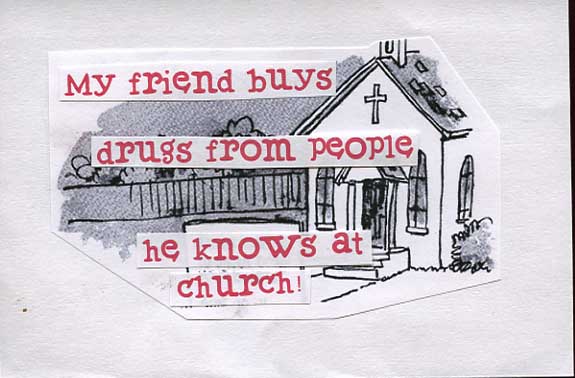 My friend buys
drugs from people
he knows at
church!